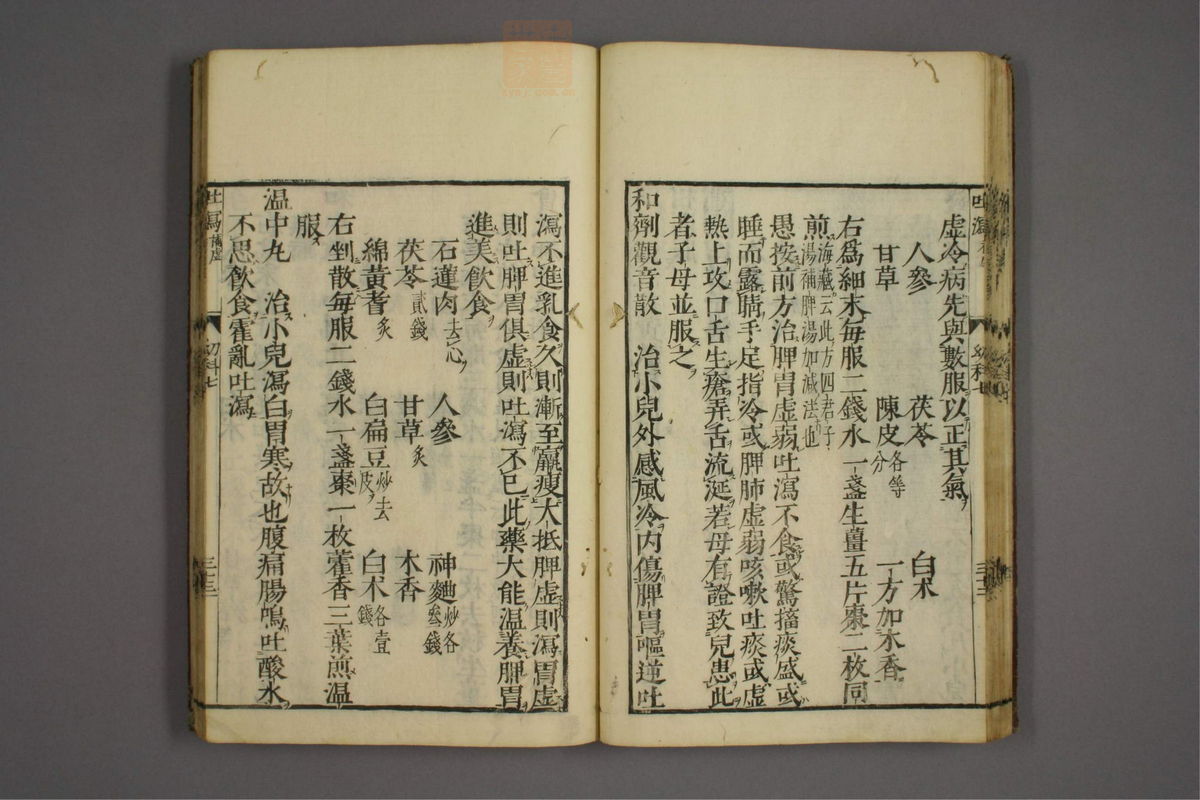 虛冷病先與數服以正其氣
人參 茯苓 白朮
甘草 陳皮各等分 一方加木香
右爲細末每服二錢水一盞生薑五片棗二枚同
煎海藏云此方四君子湯補脾湯加減法也
愚按前方治脾胃虛弱吐瀉不食或驚搐痰盛或
睡而露睛手足指冷或脾肺虛弱咳嗽吐痰或虛
熱上攻口舌生瘡弄舌流延若母有證致兒患此
者子母並服之
和劑觀音散 治小兒外感風冷內傷脾胃嘔逆吐
瀉不進乳食久則漸至羸瘦大抵脾虛則瀉胃虛
則吐脾胃俱虛則吐瀉不已此藥大能温養脾胃
進美飲食
石蓮肉去心 人參 神麯炒各叄錢
茯苓貳錢 甘草炙 木香
綿黃耆炙 白扁豆炒去皮 白朮各壹錢
右剉散每服二錢水一盞棗一枚藿香三葉煎温
服
温中丸 治小兒瀉白胃寒故也腹痛腸鳴吐酸水
不思飲食霍亂吐瀉
吐瀉補虛 幼科七 三十三